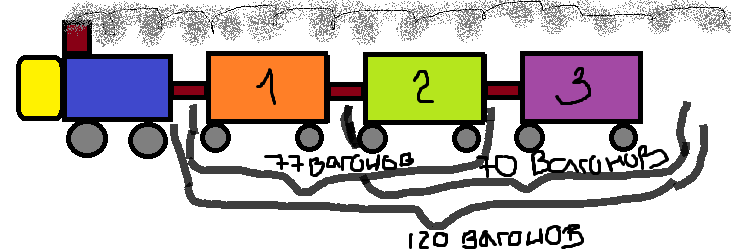 1 2 3
77 вагонов 70 вагонов
120 вагонов